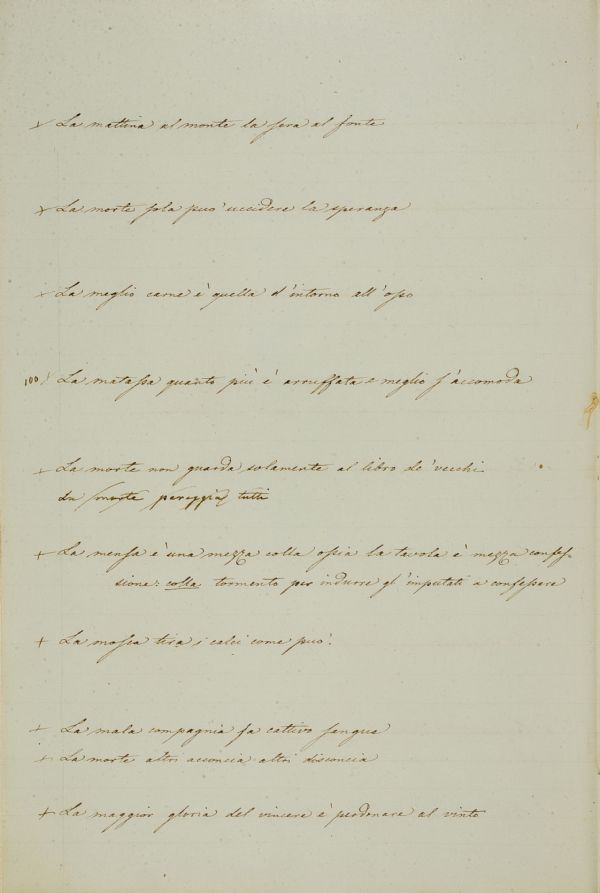 + La mattina al monte la sera al fonte
+ La morte sola puo' uccidere la speranza
+ La meglio carne è quella d'intorno all'osso
100 / La matassa quanto più è arruffata e meglio s'accomoda
+ La morte non guarda solamente al libro de' vecchi
La morte pareggia tutti
+ La mensa è una mezza colla ossia la tavola è mezza confes-
sione: colla tormento per indurre gl'imputati a confessare
+ La mosca tira i calci come può.
+ La mala compagnia fa cattivo sangue
+ La morte altri acconcia altri disconcia
+ La maggior gloria del vincere è perdonare al vinto